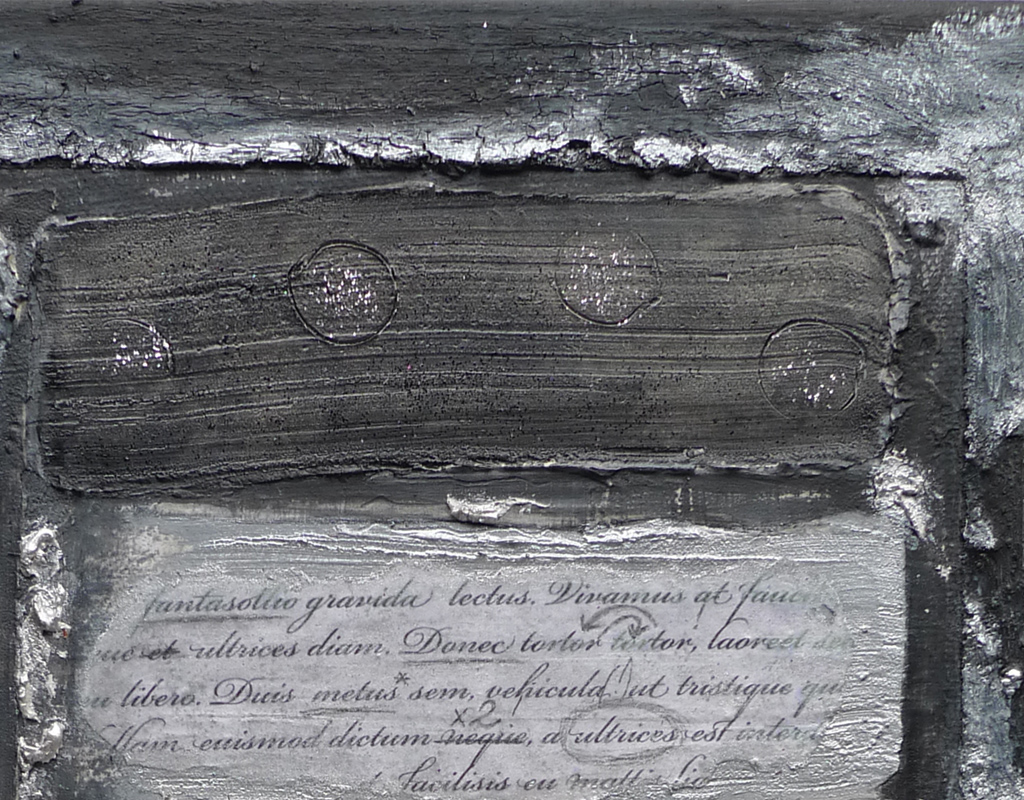 fantasollio gravida lectus. Vivamus at fauc
ue et ultrices diam. Donec tortor tortor, laoreet
u libero. Duis metus* sem, vehicula ut tristique qu
llam euismod dictum neque, a ultrices est interd
x2
facilisis eu matti